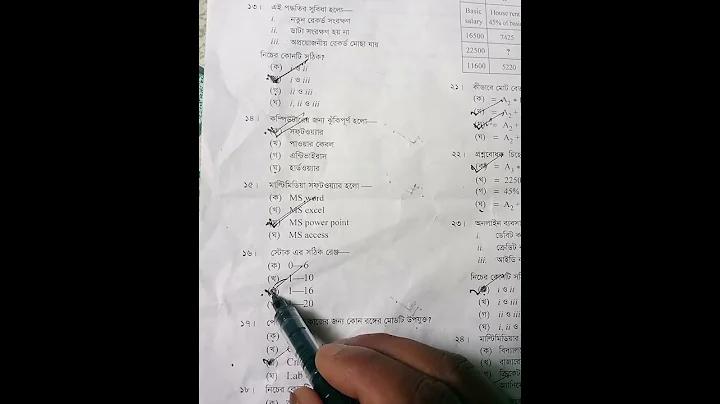 ১৩। এই পদ্ধতির সুবিধা হলো—
i. নতুন রেকর্ড সংরক্ষণ
ii. ডাটা সংরক্ষণ হয় না
iii. অপ্রয়োজনীয় রেকর্ড মোছা যায়
নিচের কোনটি সঠিক?
(ক) i ও ii
i ও iii
(গ) ii ও iii
(ঘ) i, ii ও iii
১৪। কম্পিউটারের জন্য ঝুঁকিপূর্ণ হলো—
সফটওয়্যার
(খ) পাওয়ার কেবল
(গ) এন্টিভাইরাস
(ঘ) হার্ডওয়্যার
১৫। মাল্টিমিডিয়া সফটওয়্যার হলো —
(ক) MS word
(খ) MS excel
MS power point
(ঘ) MS access
১৬। স্টোক এর সঠিক রেঞ্জ—
(ক) 0—6
(খ) 1—10
1—16
—20
১৭। কাজের জন্য কোন রঙের মোডটি উপযুক্ত?
(ক)
(খ)
(ঘ) Lab
১৮। নিচের
Basic salary House rent 45% of
16500 7425
22500 ?
11600 5220
২১। কীভাবে মোট
(ক) = A₂
= A₂ +
= A₂ +
(ঘ) = A₂ +
২২। প্রশ্নবোধক
= A₁
(খ) = 2250
(গ) = 45%
(ঘ) = A₂ +
২৩। অনলাইন
i. ডেবিট
ii. ক্রেডিট
iii. আইডি
নিচের কোনটি
i ও ii
(খ) i ও iii
(গ) ii ও
(ঘ) i, ii
২৪। মাল্টিমিডিয়ার
(ক)
(খ)